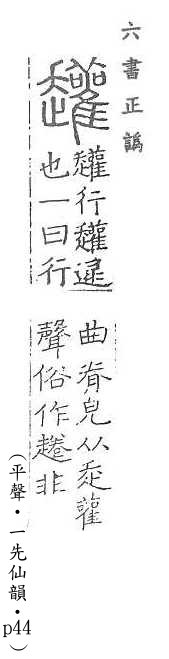 六書正譌
𧾯
𧾯行𧾯逯
也一曰行
曲脊皃从走雚
聲俗作非
(平聲・一先仙韻・p44)